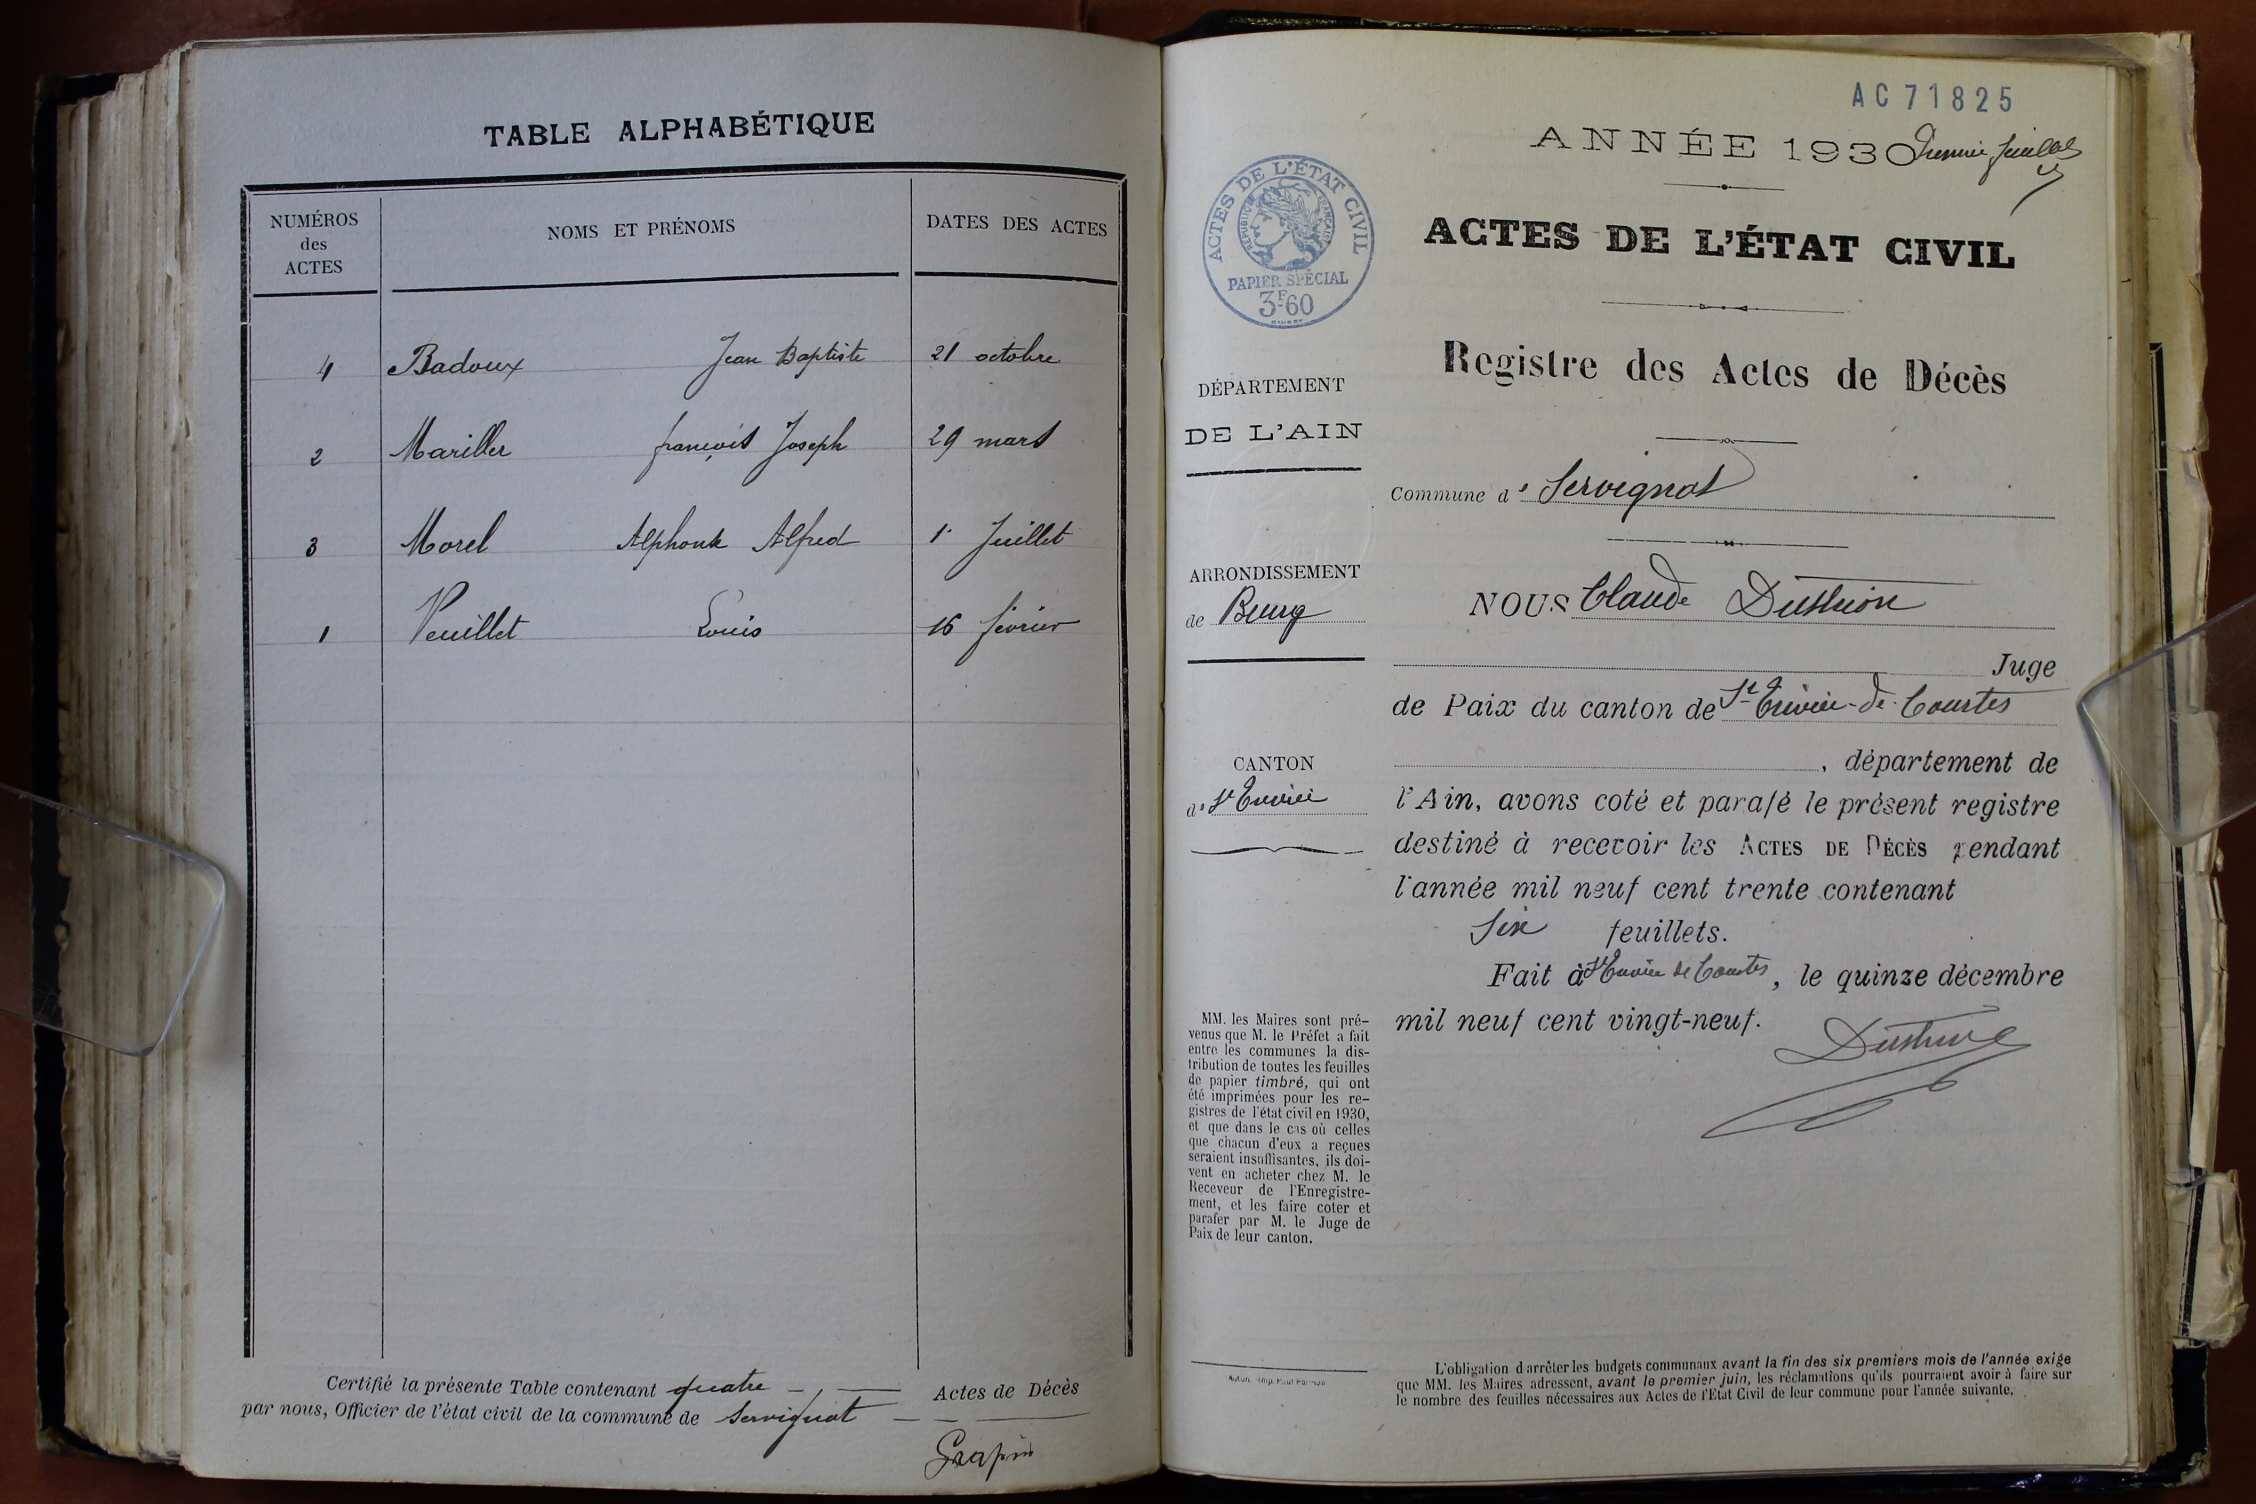 TABLE ALPHABÉTIQUE
NUMÉROS
des
ACTES
NOMS ET PRÉNOMS
DATES DES ACTES
4 Badoux Jean Baptiste 21 octobre
2 Mariller françois Joseph 29 mars
3 Morel Alphonse Alfred 1 Juillet
1 Veuillet Louis 16 février
Certifié la présente Table contenant quatre Actes de Décès
par nous, Officier de l'état civil de la commune de Servignat
Grapin
AC 71825
ANNÉE 1930
ACTES DE L'ÉTAT CIVIL
RÉPUBLIQUE FRANÇAISE
PAPIER SPÉCIAL
3F60
ACTES DE L'ÉTAT CIVIL
Registre des Actes de Décès
DÉPARTEMENT
DE L'AIN
Commune de Servignat
ARRONDISSEMENT
de Bourg
NOUS Claude
Juge
de Paix du canton de St Trivier-de-Courtes
CANTON
de St Trivier
, département de
l'Ain, avons coté et parafé le présent registre
destiné à recevoir les ACTES DE DÉCÈS pendant
l'année mil neuf cent trente contenant
Six feuillets.
Fait à St Trivier de Courtes, le quinze décembre
mil neuf cent vingt-neuf.
MM. les Maires sont pré-
venus que M. le Préfet a fait
entre les communes la dis-
tribution de toutes les feuilles
de papier timbré, qui ont
été imprimées pour les re-
gistres de l'état civil en 1930,
et que dans le cas où celles
que chacun d'eux a reçues
seraient insuffisantes, ils doi-
vent en acheter chez M. le
Receveur de l'Enregistre-
ment, et les faire coter et
parafer par M. le Juge de
Paix de leur canton.
L'obligation d'arrêter les budgets communaux avant la fin des six premiers mois de l'année exige
que MM. les Maires adressent, avant le premier juin, les réclamations qu'ils pourraient avoir à faire sur
le nombre des feuilles nécessaires aux Actes de l'Etat Civil de leur commune pour l'année suivante.